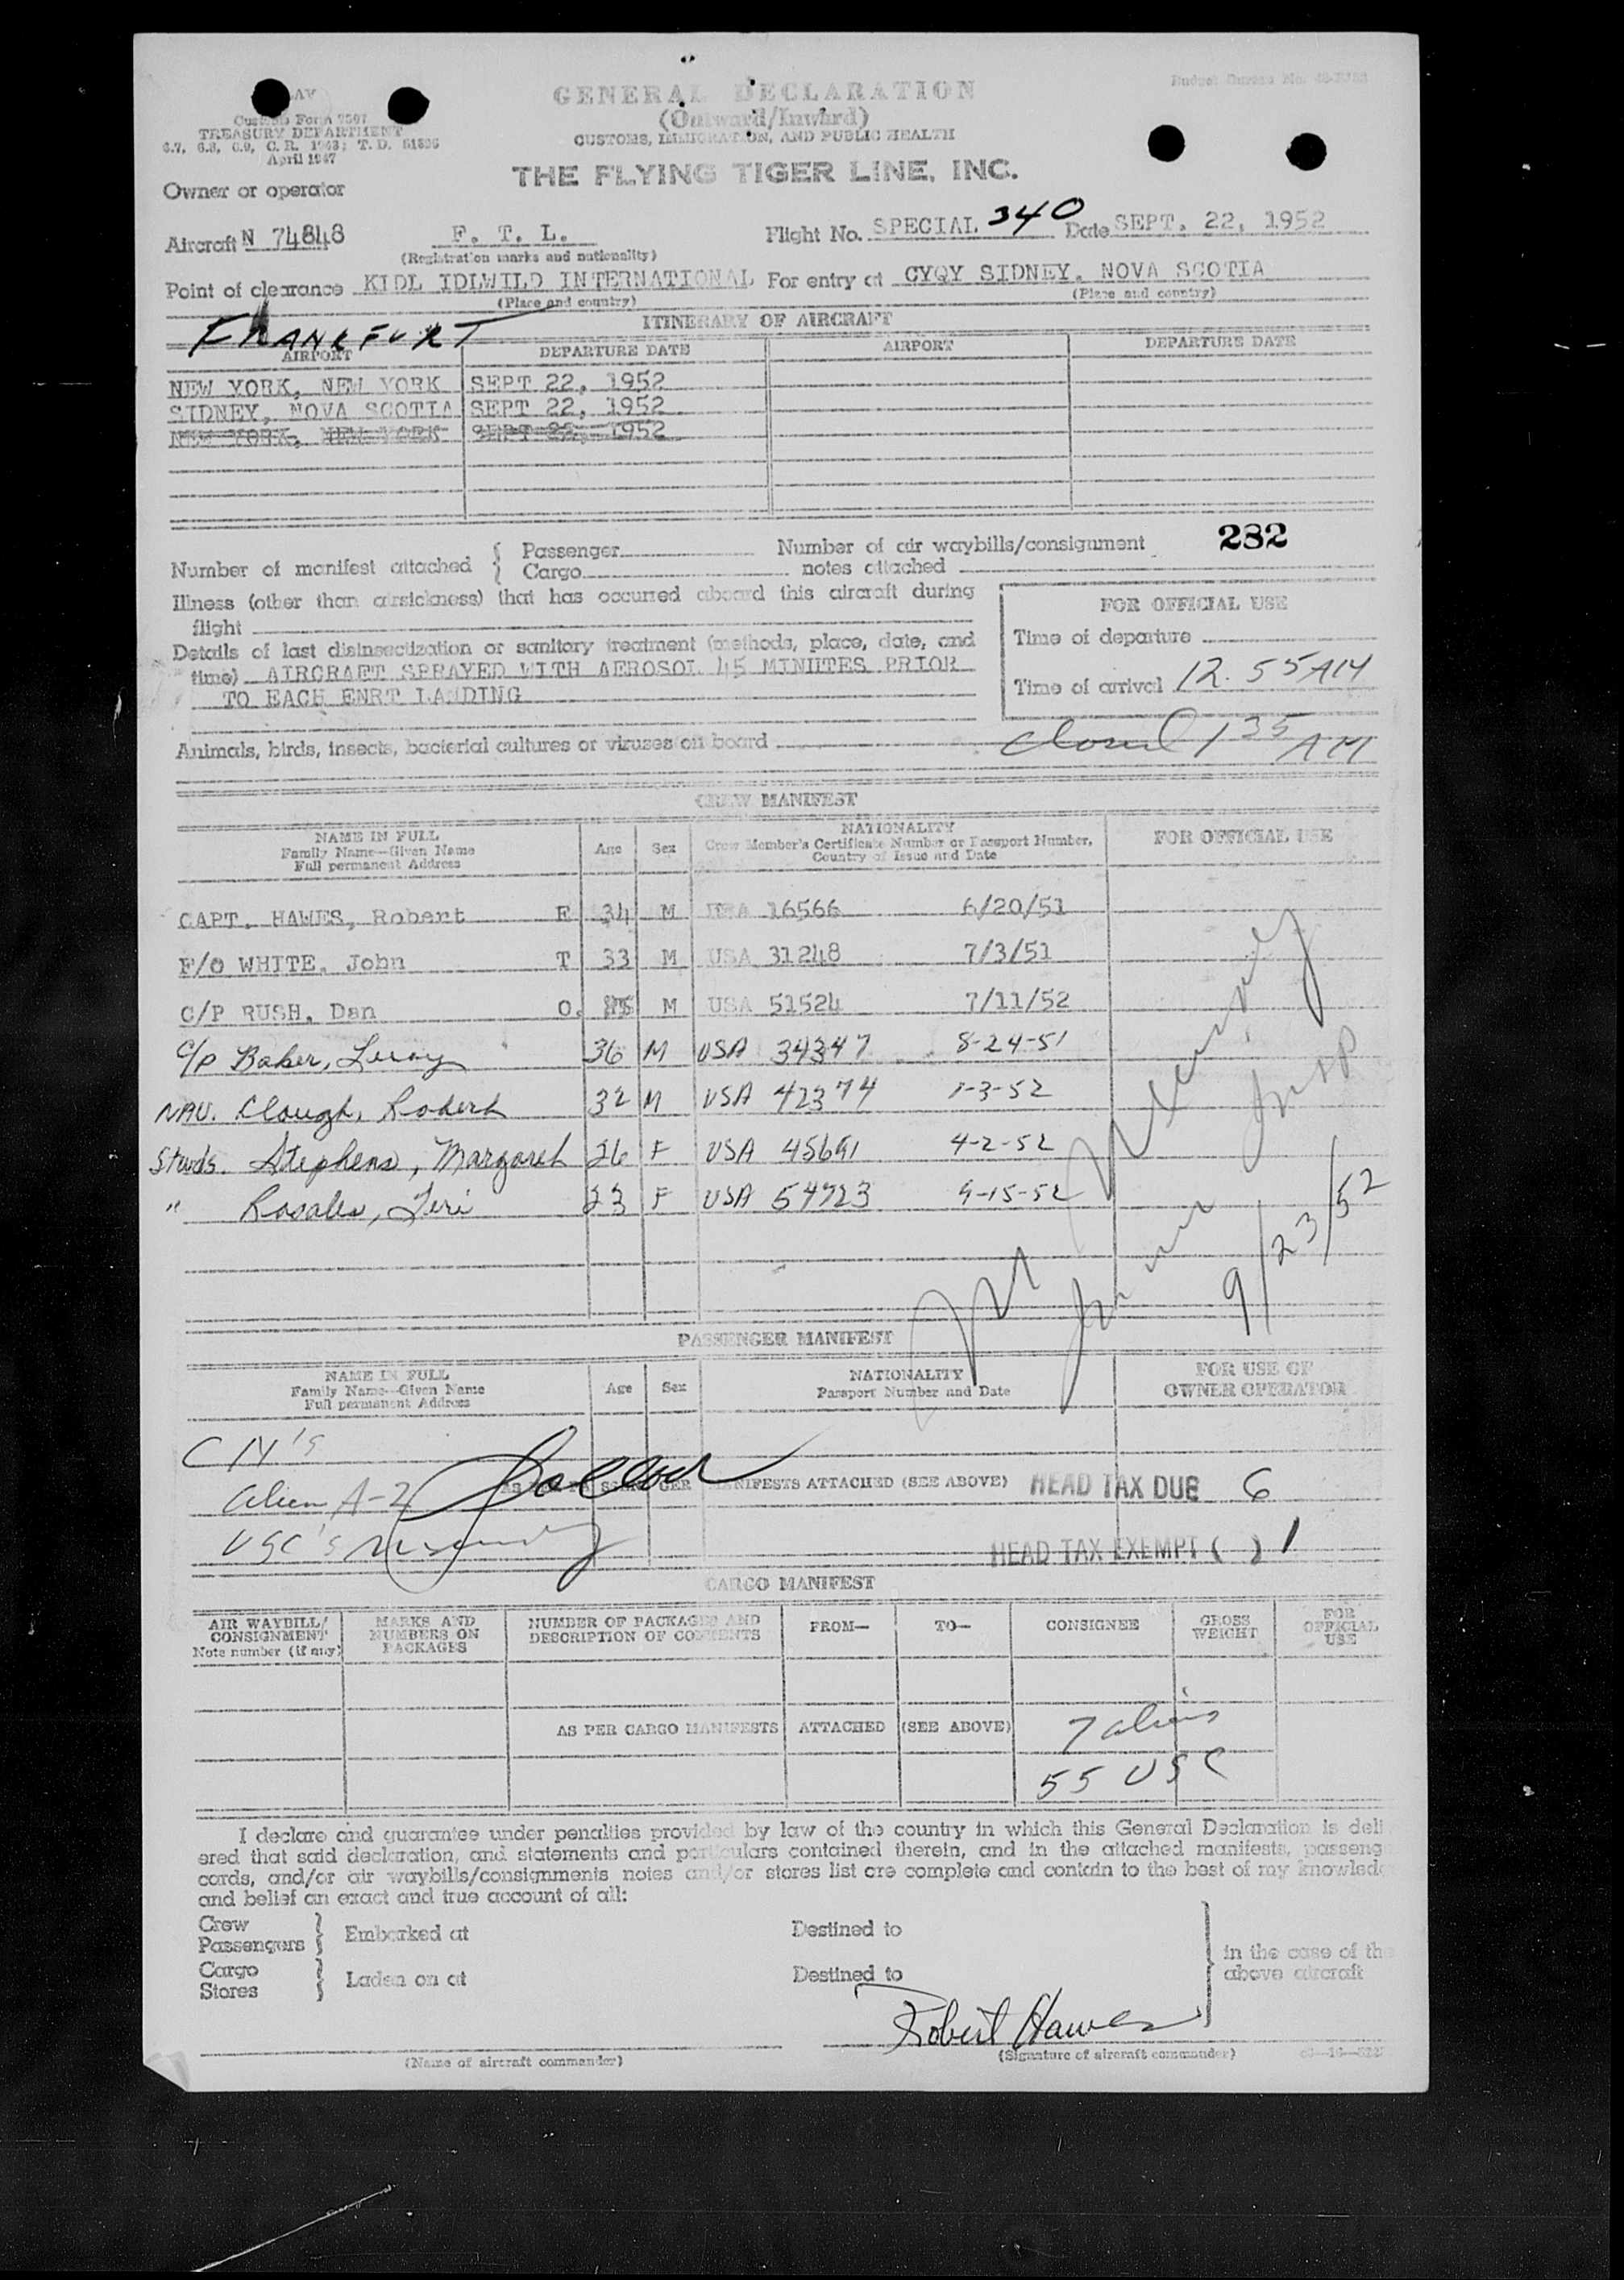 GENERAL DECLARATION
(Outward/Inward)
CUSTOMS, IMMIGRATION, AND PUBLIC HEALTH
THE FLYING TIGER LINE, INC.
Customs Form 7507
TREASURY DEPARTMENT
April 1947
Owner or operator
Aircraft N 74848 F. T. L. Flight No. SPECIAL 340 Date SEPT. 22, 1952
(Registration marks and nationality)
Point of clearance KIDL IDLWILD INTERNATIONAL For entry at CYQY SIDNEY, NOVA SCOTIA
(Place and country) (Place and country)
ITINERARY OF AIRCRAFT
FRANKFURT
AIRPORT DEPARTURE DATE AIRPORT DEPARTURE DATE
NEW YORK, NEW YORK SEPT 22, 1952
SIDNEY, NOVA SCOTIA SEPT 22, 1952
NEW YORK, NEW YORK SEPT 22, 1952
282
Number of manifest attached { Passenger Number of air waybills/consignment
Cargo notes attached
Illness (other than airsickness) that has occurred aboard this aircraft during
flight
FOR OFFICIAL USE
Time of departure
Details of last disinsectization or sanitory treatment (methods, place, date, and
time) AIRCRAFT SPRAYED WITH AEROSOL 45 MINUTES PRIOR
TO EACH ENRT LANDING
Time of arrival 12.55 AM
Animals, birds, insects, bacterial cultures or viruses on board
135 AM
CREW MANIFEST
NAME IN FULL
Family Name--Given Name
Full permanent Address
Age Sex
NATIONALITY
Crew Member's Certificate Number or Passport Number,
Country of Issue and Date
FOR OFFICIAL USE
CAPT. HAWES, Robert E 34 M USA 16566 6/20/51
F/O WHITE, John T 33 M USA 31248 7/3/51
C/P RUSH, Dan O. M USA 51524 7/11/52
C/P Baker, Leroy 36 M USA 34347 8-24-51
NAV. Clough, Robert 32 M USA 42374 1-3-52
Stwds. Stephens, Margaret 26 F USA 45691 4-2-52
" Rosales, Teri 23 F USA 54723 9-15-52
9/23/52
PASSENGER MANIFEST
NAME IN FULL
Family Name--Given Name
Full permanent Address
Age Sex
NATIONALITY
Passport Number and Date
FOR USE OF
OWNER OPERATOR
alien A-2
MANIFESTS ATTACHED (SEE ABOVE) HEAD TAX DUE 6
USC's
HEAD TAX EXEMPT ( ) 1
CARGO MANIFEST
AIR WAYBILL/
CONSIGNMENT
Note number (if any)
MARKS AND
NUMBERS ON
PACKAGES
NUMBER OF PACKAGES AND
DESCRIPTION OF CONTENTS
FROM— TO— CONSIGNEE
GROSS
WEIGHT
FOR
OFFICIAL
USE
AS PER CARGO MANIFESTS ATTACHED (SEE ABOVE) 7 aliens
55 USC
I declare and guarantee under penalties provided by law of the country in which this General Declaration is deli
ered that said declaration, and statements and particulars contained therein, and in the attached manifests, passeng
cards, and/or air waybills/consignments notes and/or stores list are complete and contain to the best of my knowled
and belief an exact and true account of all:
Crew
Passengers } Embarked at Destined to
Cargo
Stores } Laden on at Destined to
in the case of the
above aircraft
Robert Hawes
(Name of aircraft commander) (Signature of aircraft commander)